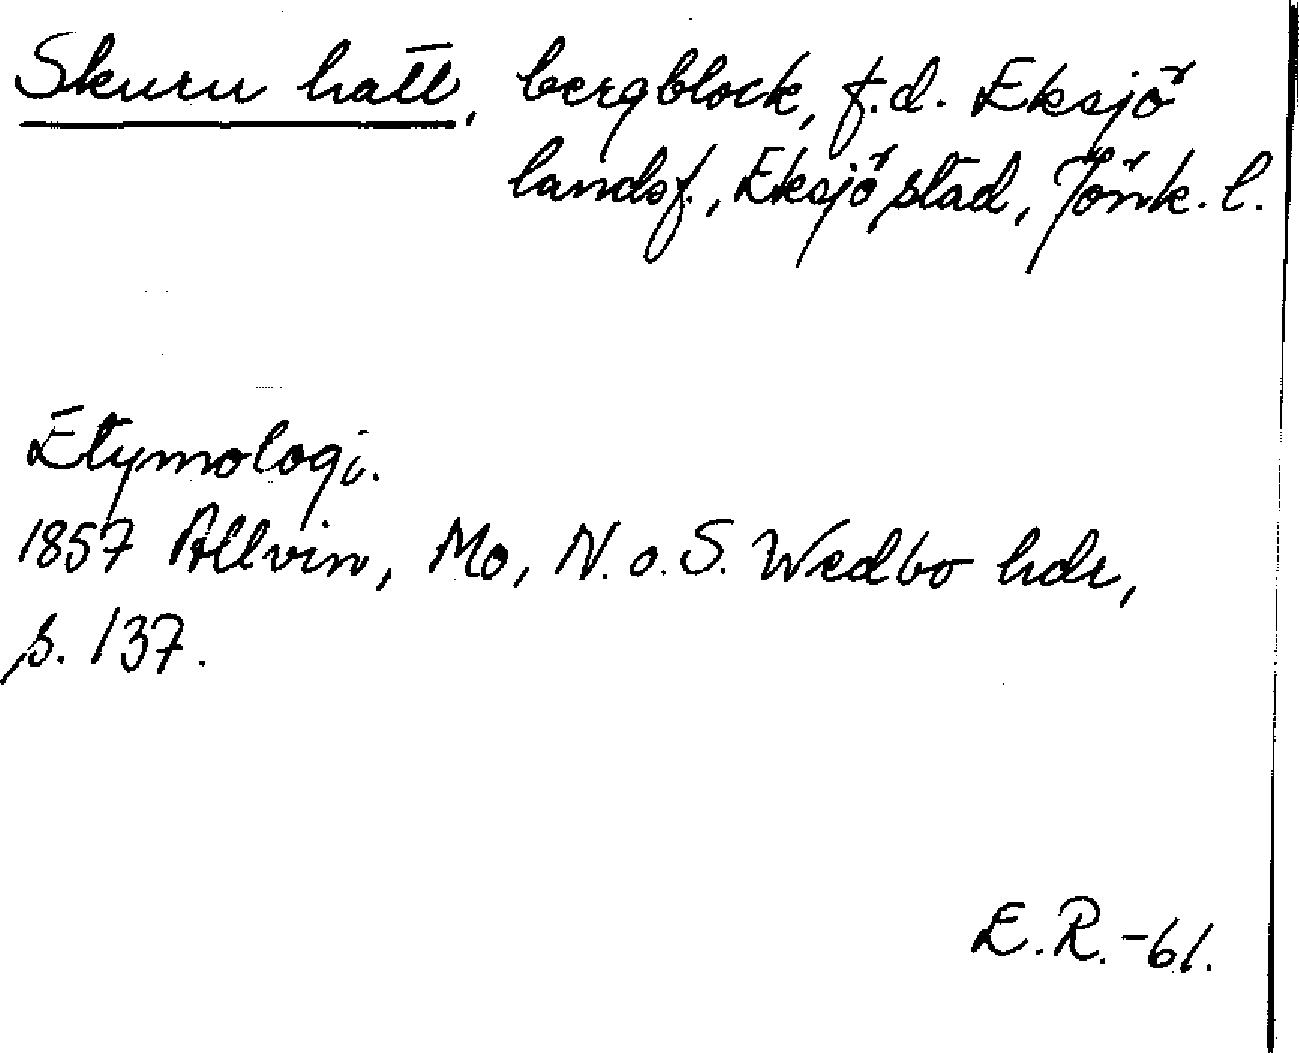 Skuru hatt, bergblock, f.d. Eksjö
landsf., Eksjö stad, Jönk. l.
Etymologi.
1857 Allvin, Mo, N. o. S. Wedbo hdr,
s. 137.
E.R.-61.